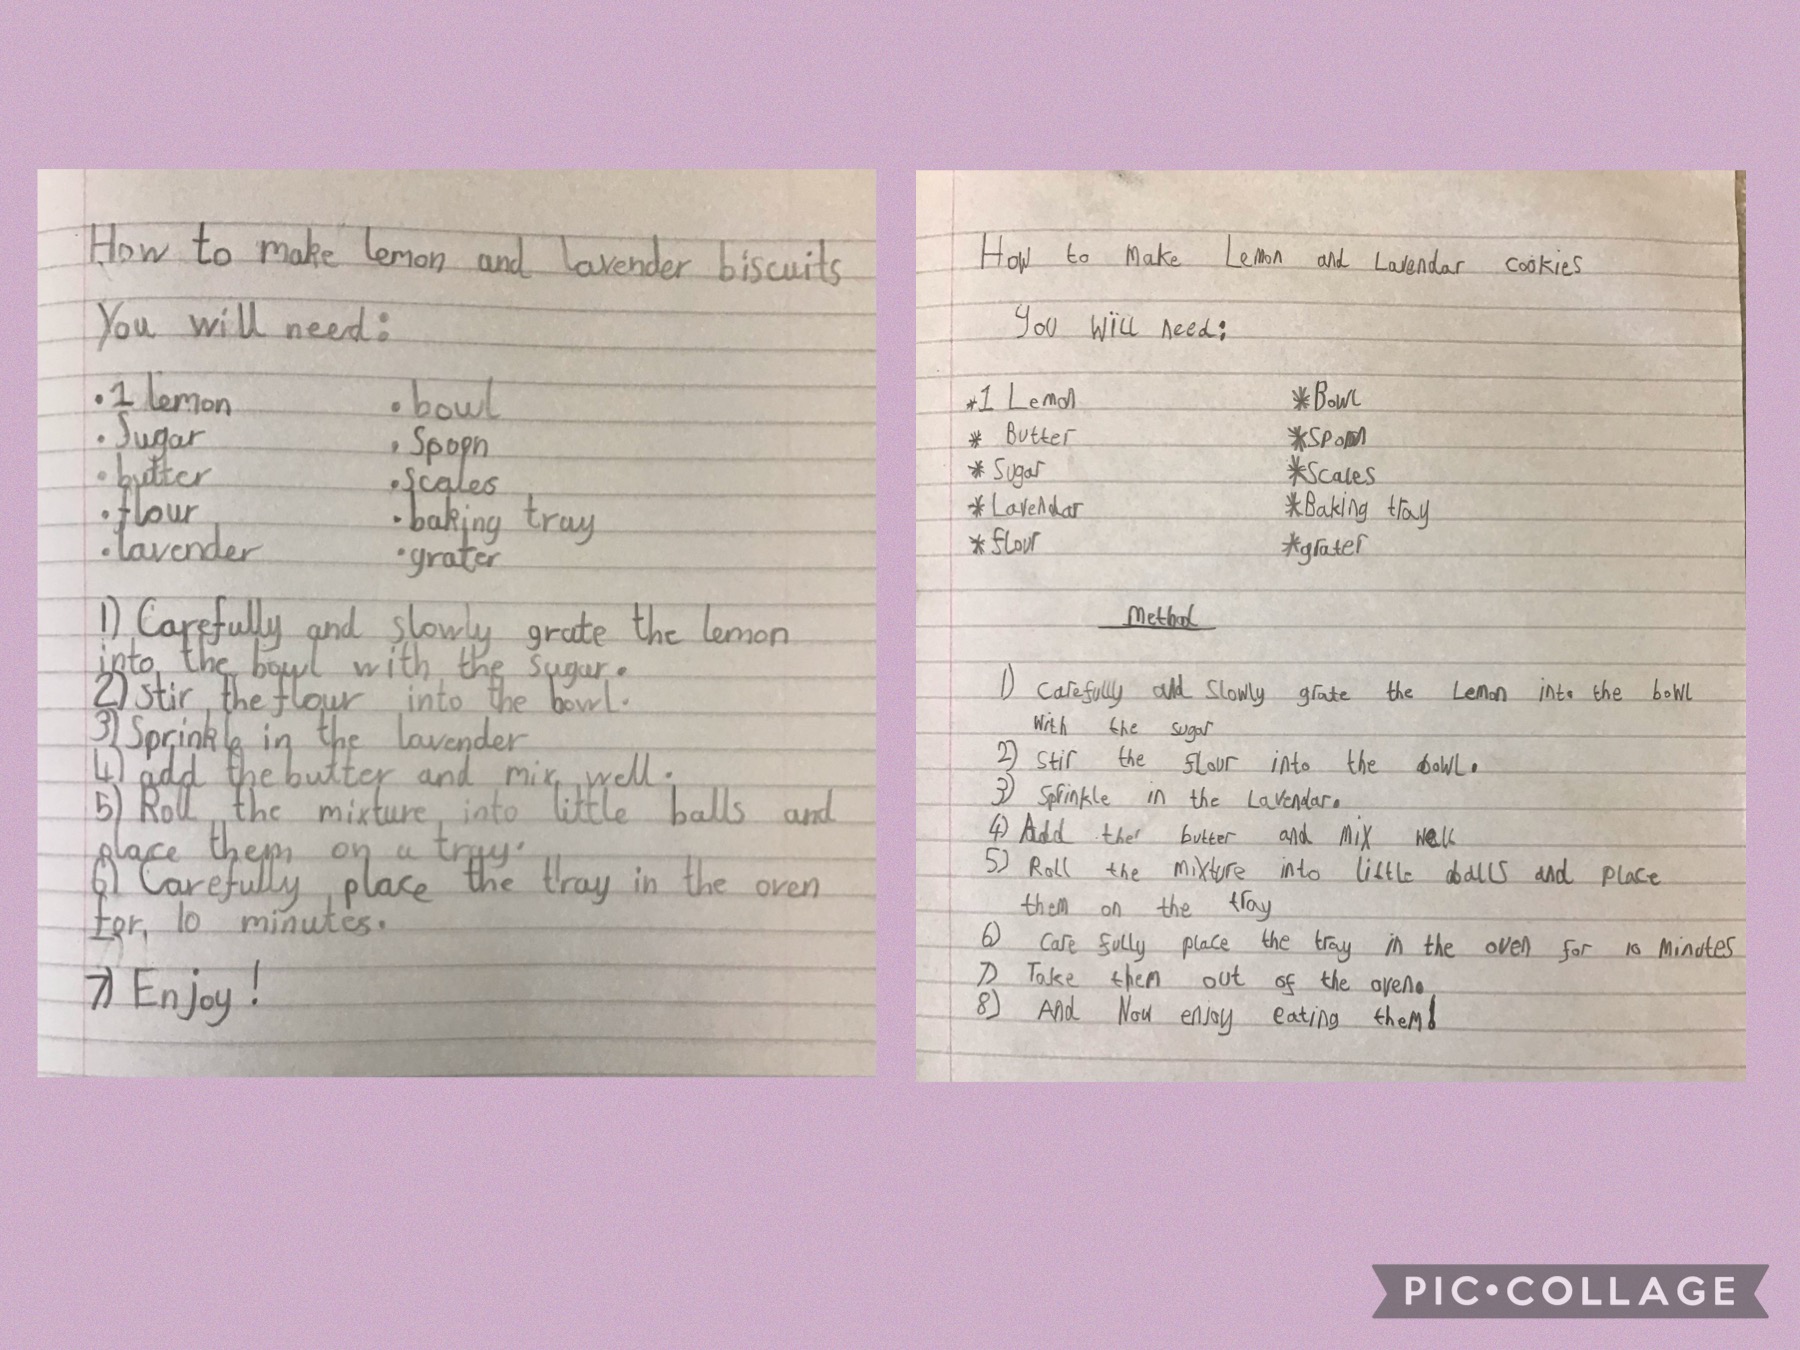 How to make lemon and lavender biscuits
You will need:
• 1 lemon
• Sugar
• butter
• flour
• lavender
• bowl
• Spoon
• Scales
• baking tray
• grater
1) Carefully and slowly grate the lemon
into the bowl with the sugar.
2) Stir the flour into the bowl.
3) Sprinkle in the lavender
4) add the butter and mix well.
5) Roll the mixture into little balls and
place them on a tray.
6) Carefully place the tray in the oven
for 10 minutes.
7) Enjoy!
How to make Lemon and Lavendar cookies
You will need:
*1 Lemon
* Butter
* Sugar
* Lavendar
* flour
*Bowl
*Spoon
*Scales
*Baking tray
*grater
Method
1) Carefully add Slowly grate the Lemon into the bowl
With the sugar
2) Stir the flour into the bowl.
3) Sprinkle in the Lavendar.
4) Add ther butter and mix well
5) Roll the mixture into little balls and place
them on the tray
6) Care fully place the tray in the oven for 10 minutes
7) Take them out of the oven.
8) And Now enjoy eating them!
PIC•COLLAGE